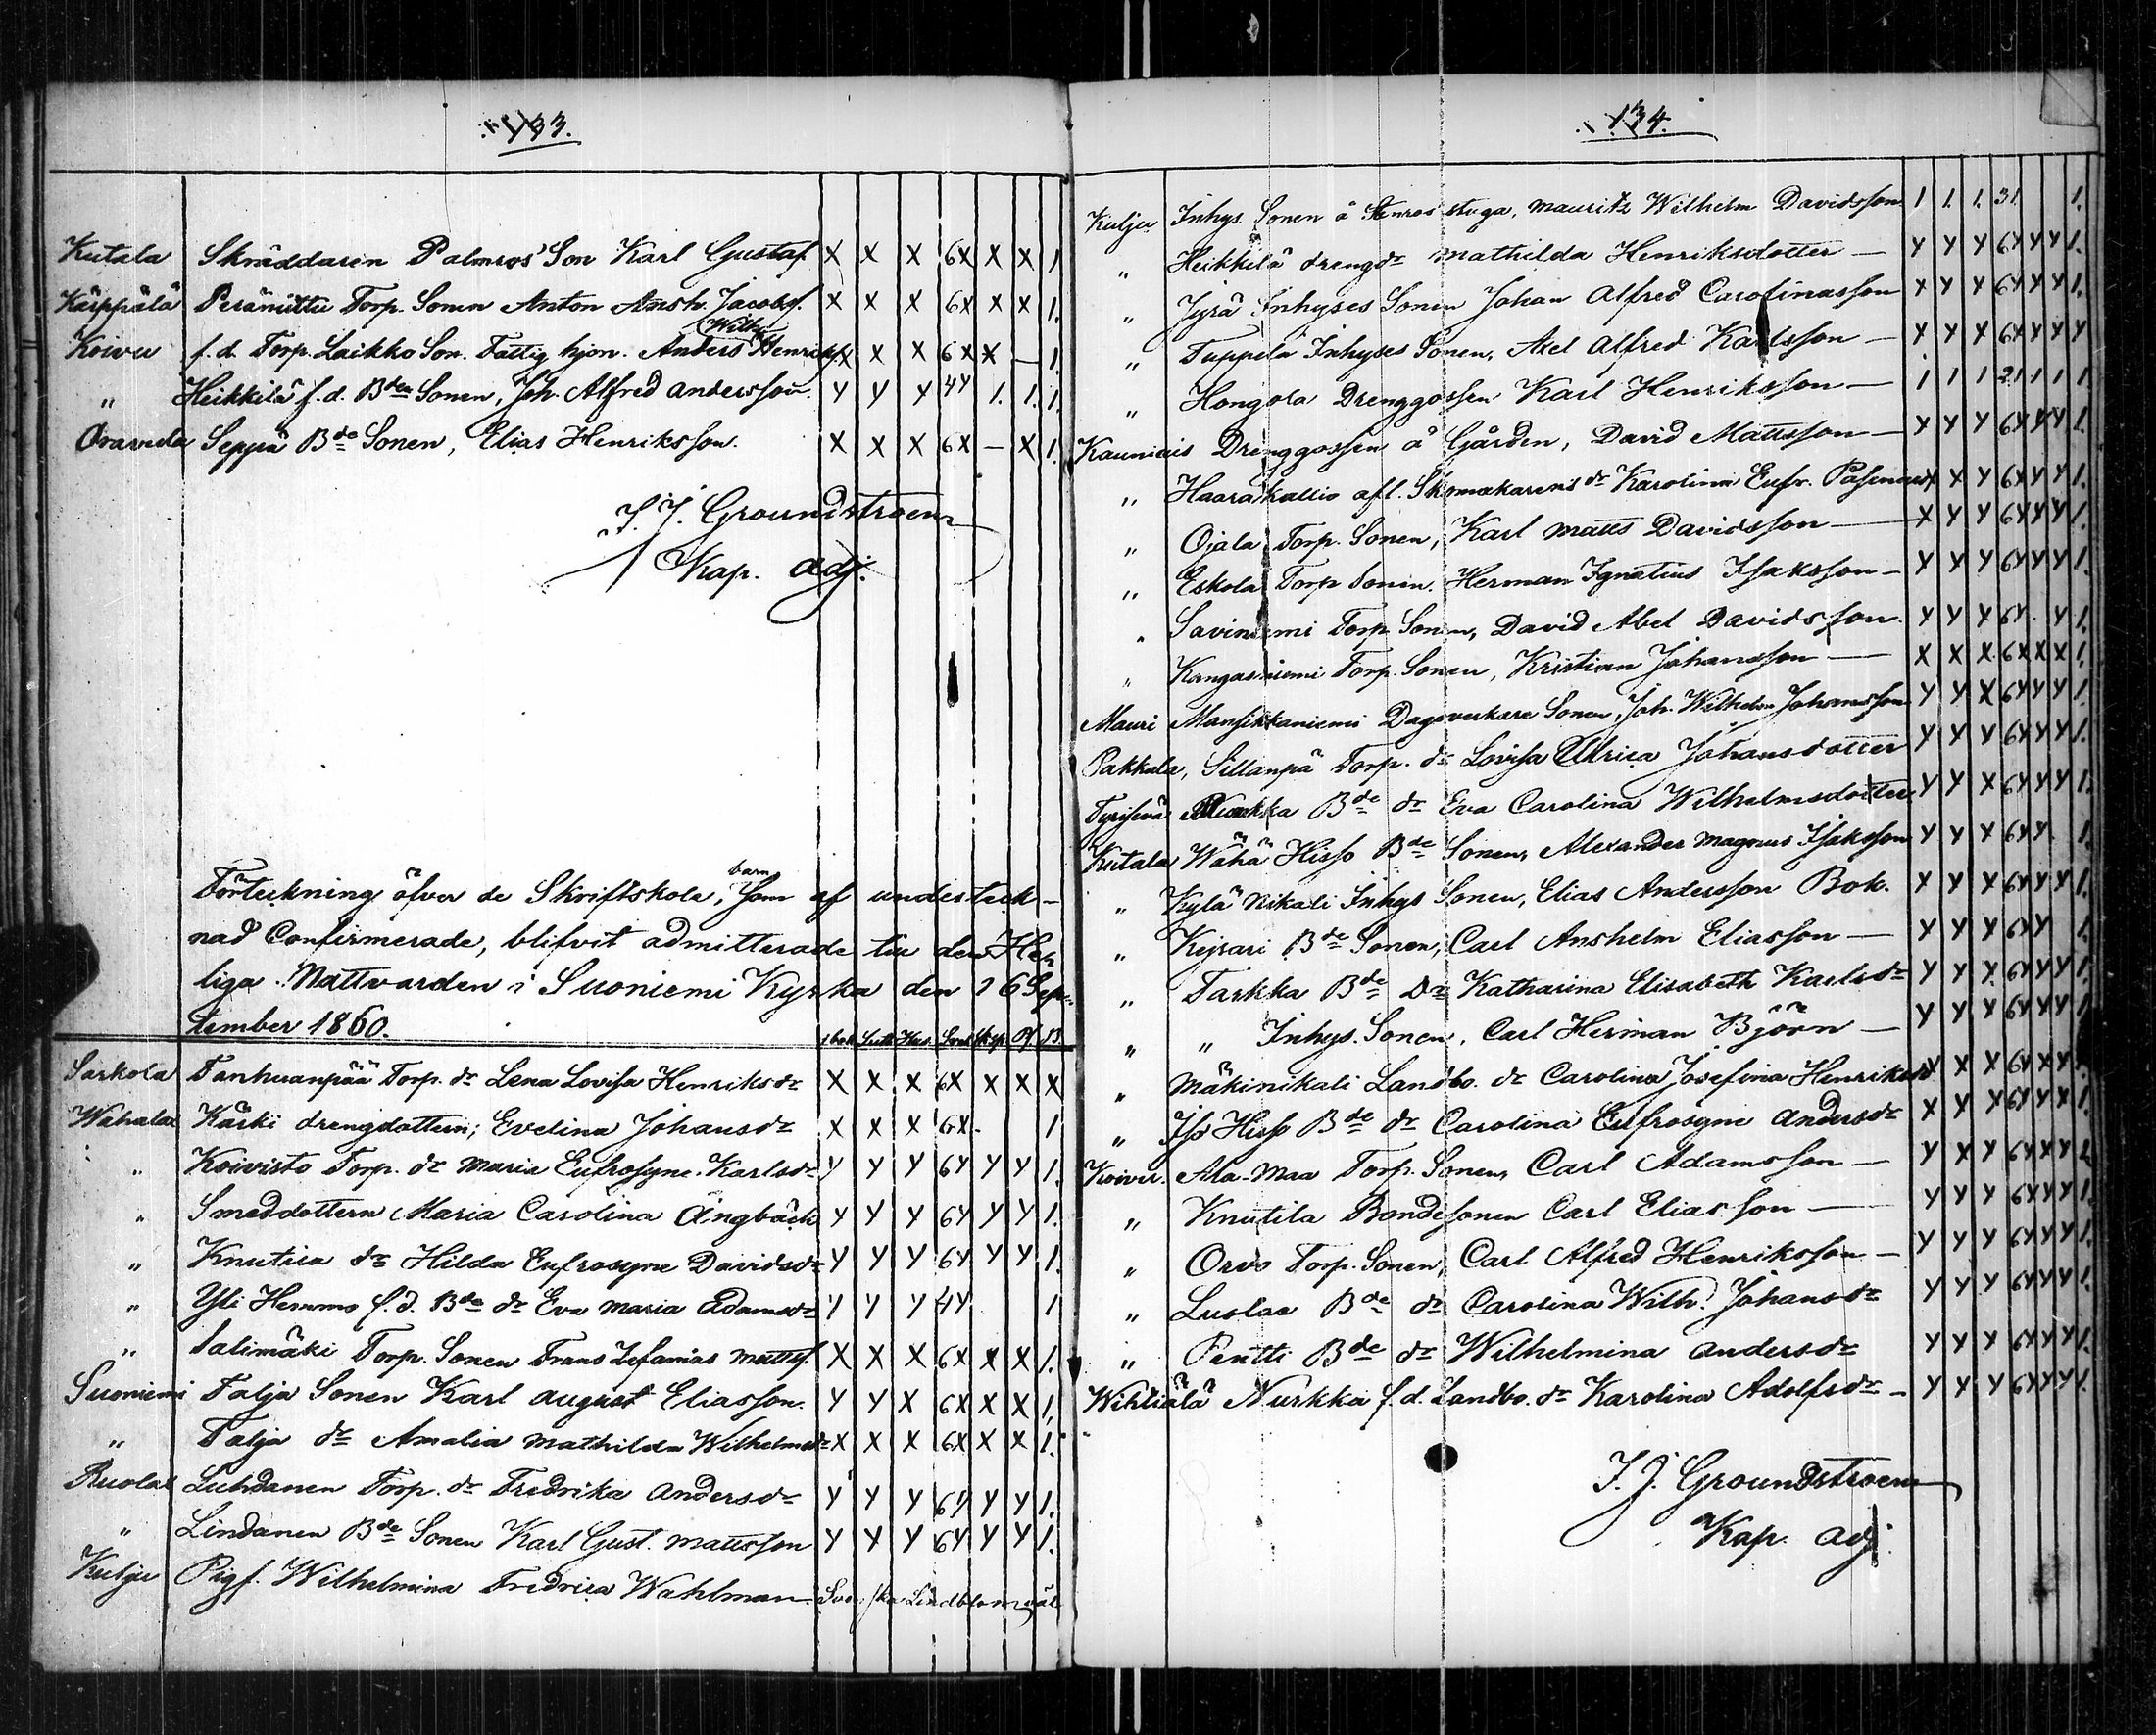 133.
Kutala Skräddaren Palmros' Son Karl Gustaf X X X 6X X X 1
Kärppälä Perämittu Torp. Sonen Anton Ansh. Jacobsf. X X X 6X X X 1.
Wilh
Koivu f.d. Torp. Laikko Son. Fattig hjon. Anders Henriksf. X X X 6X X — 1
„ Heikkilä f.d. Bde Sonen, Joh. Alfred Andersson. Y Y Y 4Y 1. 1. 1.
Oravula Seppä Bde Sonen, Elias Henriksson. X X X 6X — X 1.
J. J. Groundstroem
Kap. adj.
barn
Förteckning öfver de Skriftskola, som af underteck-
nad Confirmerade, blifvit admitterade till den He-
liga Nattvarden i Suoniemi Kyrka den 26 Sep-
tember 1860.
Sarkola Tanhuanpää Torp. dr Lena Lovisa Henriksdr X X X 6X X X X
Wahalax Käski drengdottern; Evelina Johansdr X X X 6X. 1
„ Koivisto Torp. dr Maria Eufrosyne Karlsdr Y Y Y 6Y Y Y 1.
„ Smeddottern Maria Carolina Ängbäck Y Y Y 6Y Y Y 1.
„ Knutila dr Hilda Eufrosyne Davidsdr Y Y Y 6Y Y Y 1.
„ Yli Hemmo f.d. Bde dr Eva Maria Adamsdr Y Y Y 4Y 1
„ Salimäki Torp. Sonen Frans Zefanias Mattsf. X X X 6X X X 1.
Suoniemi Talja Sonen Karl August Eliasson. Y Y X 6X X X 1.
„ Talja dr Amalia Mathilda Wilhelmsdr X X X 6X X X 1.
Luhdanen Torp. dr Fredrika Andersdr Y Y Y 6Y Y Y 1.
„ Lindanen Bde Sonen Karl Gust. Mattsson Y X Y 6Y Y Y 1.
Kulju Pigf. Wilhelmina Fredrica Wahlman Svenska Lindblom
134.
Kulju Inhys. Sonen å Stenros stuga, Mauritz Wilhelm Davidsson 1 1. 1. 31. 1.
„ Heikkilä drengdr Mathilda Henriksdotter — Y Y Y 6Y Y Y 1.
„ Jyrä Inhyses Sonen Johan Alfred Carolinasson X Y Y 6Y Y Y 1.
„ Tuppila Inhyses Sonen, Axel Alfred Karlsson — X Y X 6X Y Y Y
„ Hongola Drenggossen Karl Henriksson — 1 1 1 21 1 1 1.
Kauniais Drenggossen å Gården, David Mattsson — X Y Y 6Y Y Y 1.
„ Haarakallio afl. Skomakarens dr Karolina Eufr. X Y 6X Y Y 1.
„ Ojala Torp. Sonen, Karl Matts Davidsson — X Y Y 6Y Y Y 1.
„ Eskola Torp Sonen. Herman Ignatius Isaksson — Y Y Y 6Y Y Y 1.
„ Saviniemi Torp Sonen, David Abel Davidsson. Y Y X 6Y. Y 1.
„ Kangasniemi Torp. Sonen, Kristian Johansson — X X X. 6X X X 1.
Mauri Mansikkaniemi Dagsverkare Sonen, Joh. Wilhelm Johansson Y Y X 6Y Y Y 1.
Pakkala, Sillanpä Torp. dr Lovisa Ulrica Johansdotter Y Y Y 6Y Y Y 1.
Tyrisevä Bde dr Eva Carolina Wilhelmsdotter Y Y X 6Y Y Y 1.
Kutala Wähä Hisso Bde Sonen, Alexander Magnus Isaksson Y Y X 6Y Y 1.
„ Kylä Nikali Inhys Sonen, Elias Andersson Bok. X Y X 6Y Y Y 1.
„ Kejsari Bde Sonen, Carl Anshelm Eliasson — X Y X 6Y Y 1.
„ Tarkka Bde Dr Katharina Elisabeth Karlsdr Y Y X. 6Y Y Y 1.
„ „ Inhys. Sonen, Carl Herman Björn — Y Y Y 6Y Y Y 1.
„ Mäkinikali Landbo. dr Carolina Josefina Henriksdr X X X 6Y X Y 1.
„ Iso Hisso Bde dr Carolina Eufrosyne Andersdr X Y X 6Y Y X 1.
Koivu. Ala-Maa Torp. Sonen, Carl Adamsson — Y X Y 6Y X Y 1.
„ Knutila Bondesonen Carl Eliasson — Y Y Y 6Y Y Y 1.
„ Orvo Torp. Sonen, Carl Alfred Henriksson — Y Y Y 6Y Y Y 1.
„ Luolaa Bde dr Carolina Wilh. Johansdr Y Y Y 6Y Y Y 1.
„ Pentti Bde dr Wilhelmina Andersdr Y Y Y 6Y Y Y 1.
Wihtiälä Nurkka f.d. Landbo. dr Karolina Adolfsdr — Y Y Y 6Y Y Y 1.
J. J. Groundstroem
Kap. adj.